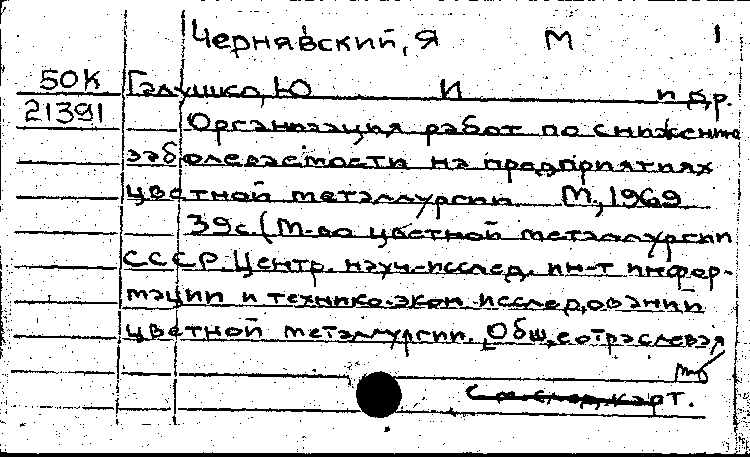 Чернявский, Я М 1
50К Галушко, Ю И и др.
21391 Организация работ по снижению
заболеваемости на предприятиях
цветной металлургии. М., 1969
39с. (М-во цветной металлургии
СССР. Центр. науч.-исслед. ин-т инфор-
мации и технико-экон. исследований
цветной металлургии. Общеотраслевая
карт.